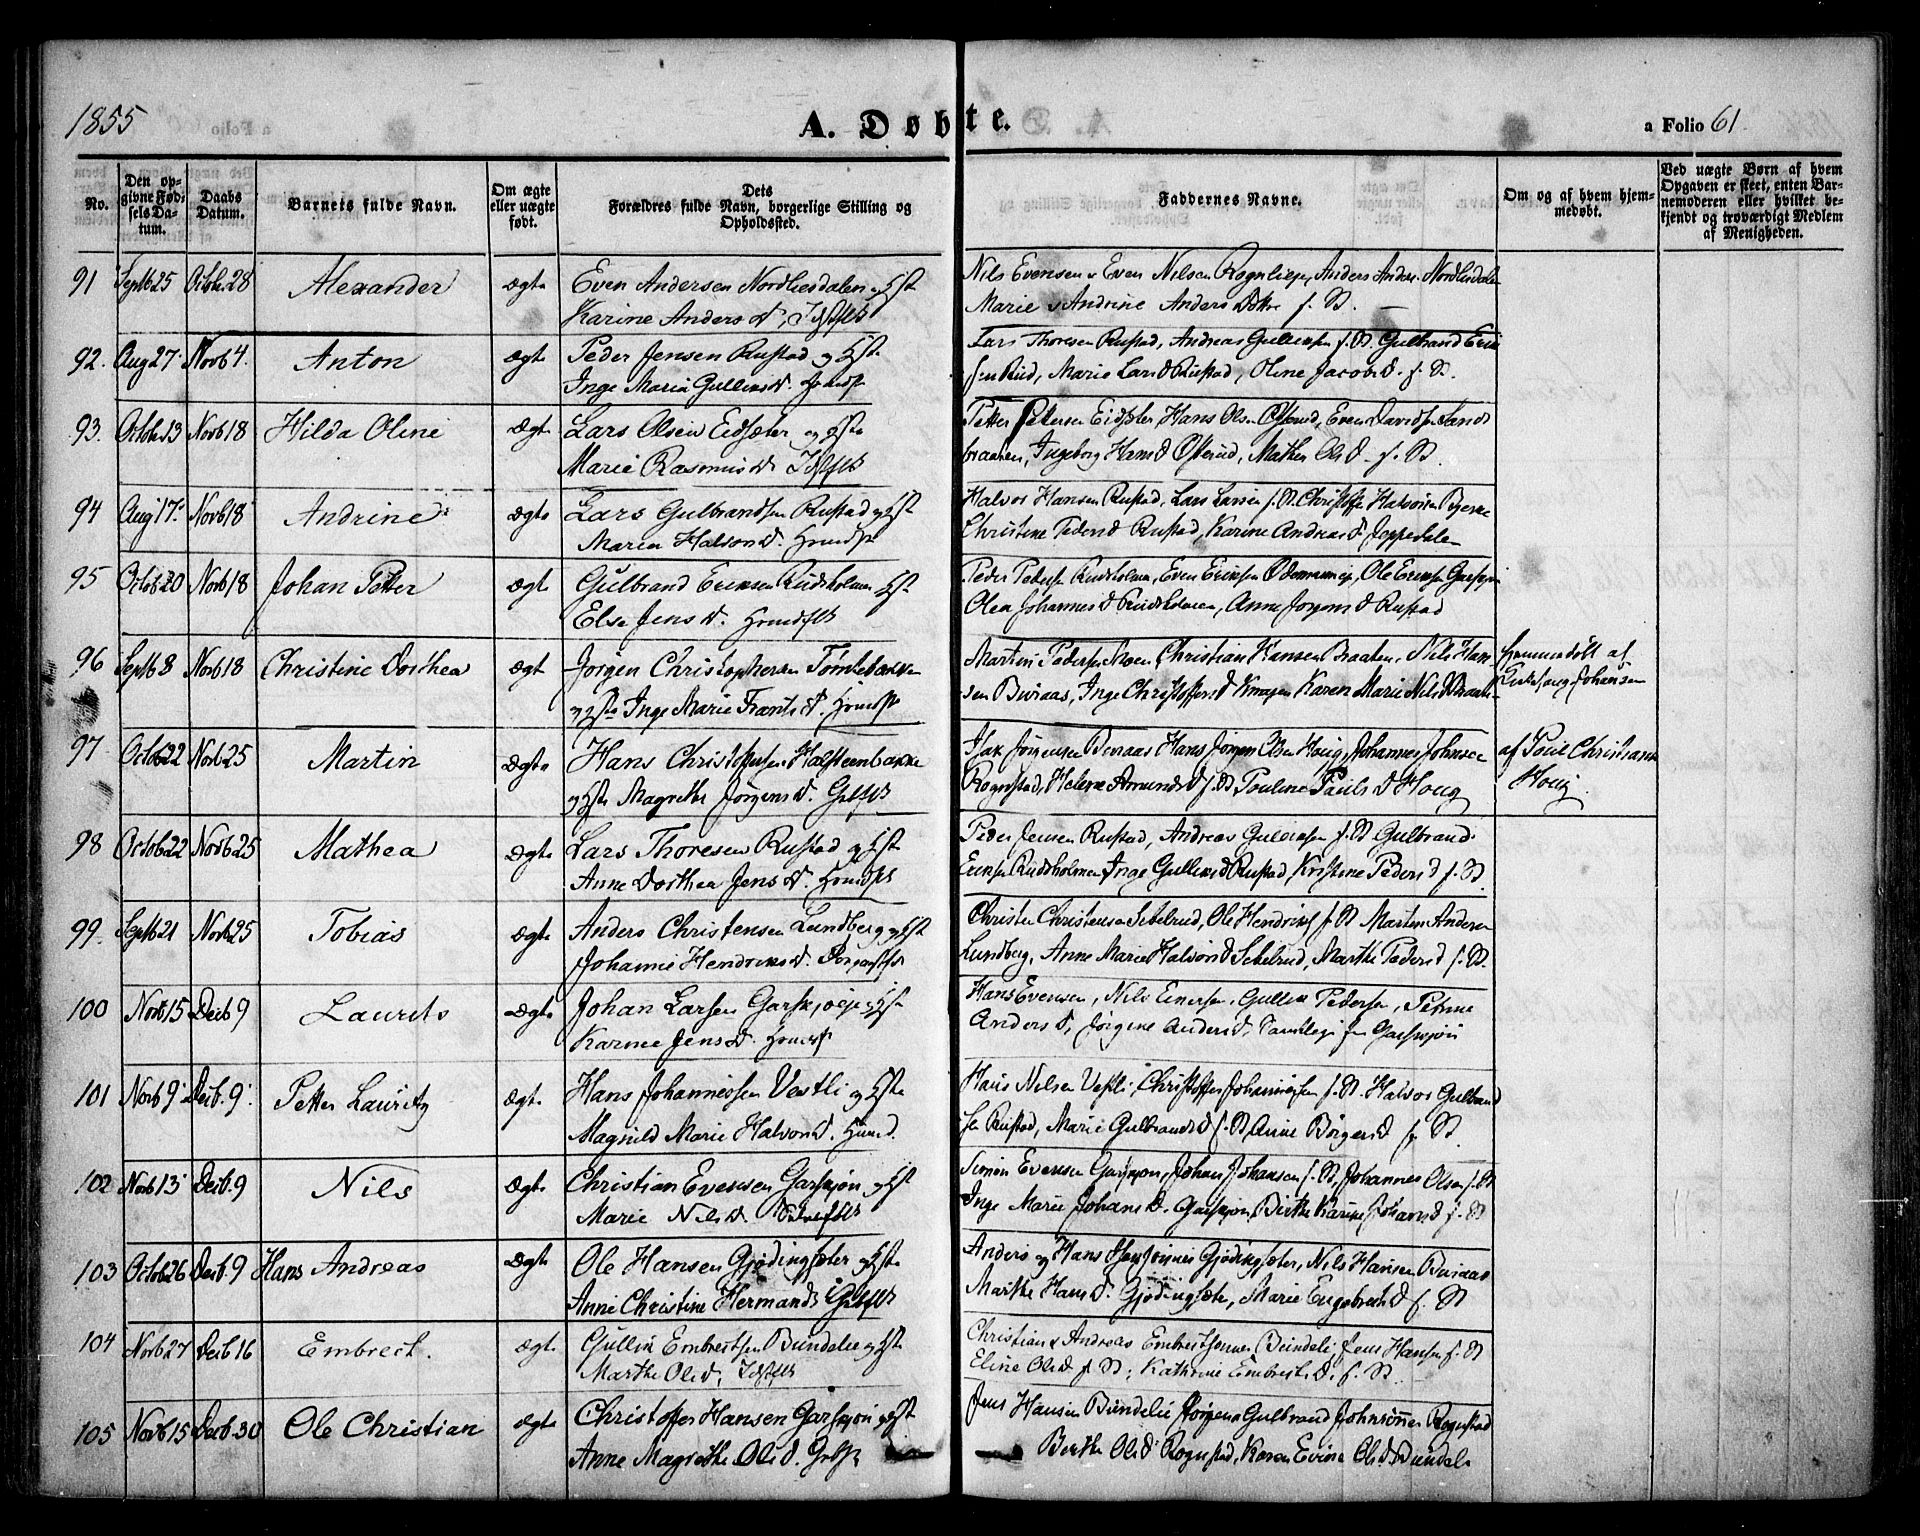 1855
A. Døbte.
a Folio 61.
No.
Den opgivne Fødselsdatum.
Daabs Datum.
Barnets fulde Navn.
Om ægte eller uægte født.
Dets Forældres fulde Navn, borgerlige Stilling og Opholdssted.
Faddernes Navne.
Om og af hvem hjemmedøbt.
Ved uægte Børn af hvem Opgaven er skeet, enten Barnemoderen eller hvilket bekjendt og troværdigt Medlem af Menigheden.
91 Septb 25 Octbr. 28 Alexander Ægte Even Andersen Nordliedalen og Hst
Karine Anders D.
Nils Evensen Even Nilsen Rognliep, Anders Anders. Nordliedalen
Marie & Andrine Anders Døtre f. St.
92. Aug 27. Novb 4. Anton Ægte Peder Jensen Rustad og Hst
Inge Maria Gulliks D.
Lars Thoresen Rustad, Andreas Gulliksen f. St. Gulbrand Erik
sen Rud, Marie Lars D Rustad, Oline Jacobs D. f. St.
93. Octbr. 13 Novb 18 Hilda Oline Ægt Lars Olsen Eidsæter og Hst
Marie Rasmus D
Petter Pettersen Eidsæter Hans Olsen Østerud, Even Davidsen Sand
braaten, Ingeborg Hans D Østerud, Mathea Ols D. f. St.
94 Aug 17. Novb 18 Andrine Ægte Lars Gulbrandsen Rustad og Hst
Maria Halvors D.
Halvor Hansen Rustad, Lars Larsen f. St. Christoffer Halvorsen Bjerke
Christine Peders D Rustad, Karine Andreas D. Joppedalen
95 Octob 20 Novb 18 Johan Petter Ægt Gulbrand Eriksen Rudsholmen Hst
Else Jens D.
Peder Pedersen Rudsholmen, Even Eriksen, Ole Eriksen Garsjøen
Olea Johannes D Rudsholmen, Anne Jørgens D Rustad
96 Septb 8 Novb 18 Christine Dorthea Ægt Jørgen Christophersen Tømtebakken
og Hst Inge Marie Frants D.
Martin Pedersen Moen, Christian Hansen Braaten, Nils Han
sen Buraas, Inge Christoffers D Karen Marie Nils D Braaten
hjemmedøbt af
Kirkesang. Johansen
97 Octob 22 Novb 25 Martin Ægte Hans Christophersen Halsteenbakke
og Hst Magrethe Jørgens D.
Isak Jørgensen Buraas Hans Jørgen Olsen Houg, Johannes Johnsen
Rognstad, Helene Amunds D f. St. Pouline Pouls D Houg
af Poul Christiansen
Houg.
98 Octob 22 Novb 25 Mathea Ægte Lars Thoresen Rustad og Hst
Anne Dorthea Jens D.
Peder Jensen Rustad, Andreas Gulliksen f. St Gulbrand
Eriksen Rudsholmen Inge Gulliks D Rustad, Kristine Peders D f. St.
99. Septb 21 Novb 25 Tobias Ægte Anders Christensen Lundberg og Hst
Johanne Hendriks D.
Christen Christensen Sebelrud, Ole Hendriks f. St Martin Andersen
Lundberg, Anne Marie Halvors D Sebelrud, Marthe Peders D f. St.
100 Novb 15 Decb 9 Laurits Ægte Johan Larsen Garsjøen og Hst
Karine Jens D.
Hans Evensen, Nils Einersen, Gullik Pedersen, Petrine
Anders D, Jørgine Anders D, Samtlige fra Garsjøen
101 Novb 9 Decb. 9. Petter Lauritz Ægte Hans Johannessen Vestli og Hst
Magnild Marie Halvors D.
Hans Nilsen Vestli, Christoffer Johannessen f. St. Halvor Gulbrand
sen Rustad, Marie Gulbrands D f. St, Anne Børges D f. St.
102 Novb 13 Decb. 9 Nils Ægte Christian Evensen Garsjøn og Hst
Marie Nils D.
Simon Evensen Garsjøn, Johan Johansen f. St, Johannes Olsen f. St
Inge Marie Johans D. Garsjøn, Birthe Karine Johans D f. St
103 Octob 26 Decb. 9 Hans Andreas Ægte Ole Hansen Gjødingsæter og Hst
Anne Christine Hermands D
Anders og Hans Gjødingsæter, Nils Hansen Buraas
Marthe Hans D. Gjødingsæter, Marie Engebrets D f. St
104 Novb 27 Decb 16 Embrect. Ægt. Gullik Embretsen Bundeli og Hst
Marthe Ols D,
Christian & Andreas Embretsønner Bundeli, Jens Hansen f. St
Eline Ols D f. St; Kathrine Embrets D. f. St.
105 Novb 15 Decb. 30 Ole Christian Ægte Christoffer Hansen Garsjøn og Hst
Anne Magrethe Ols D.
Jens Hansen Bundelie Jørgen & Gulbrand Johnsønner Rognstad
Berthe Ols D Rognstad, Karen Evine Ols D Bundeli